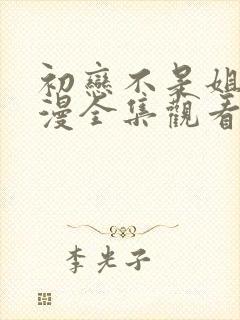 初戀不呆姐
漫全集觀看
李光子